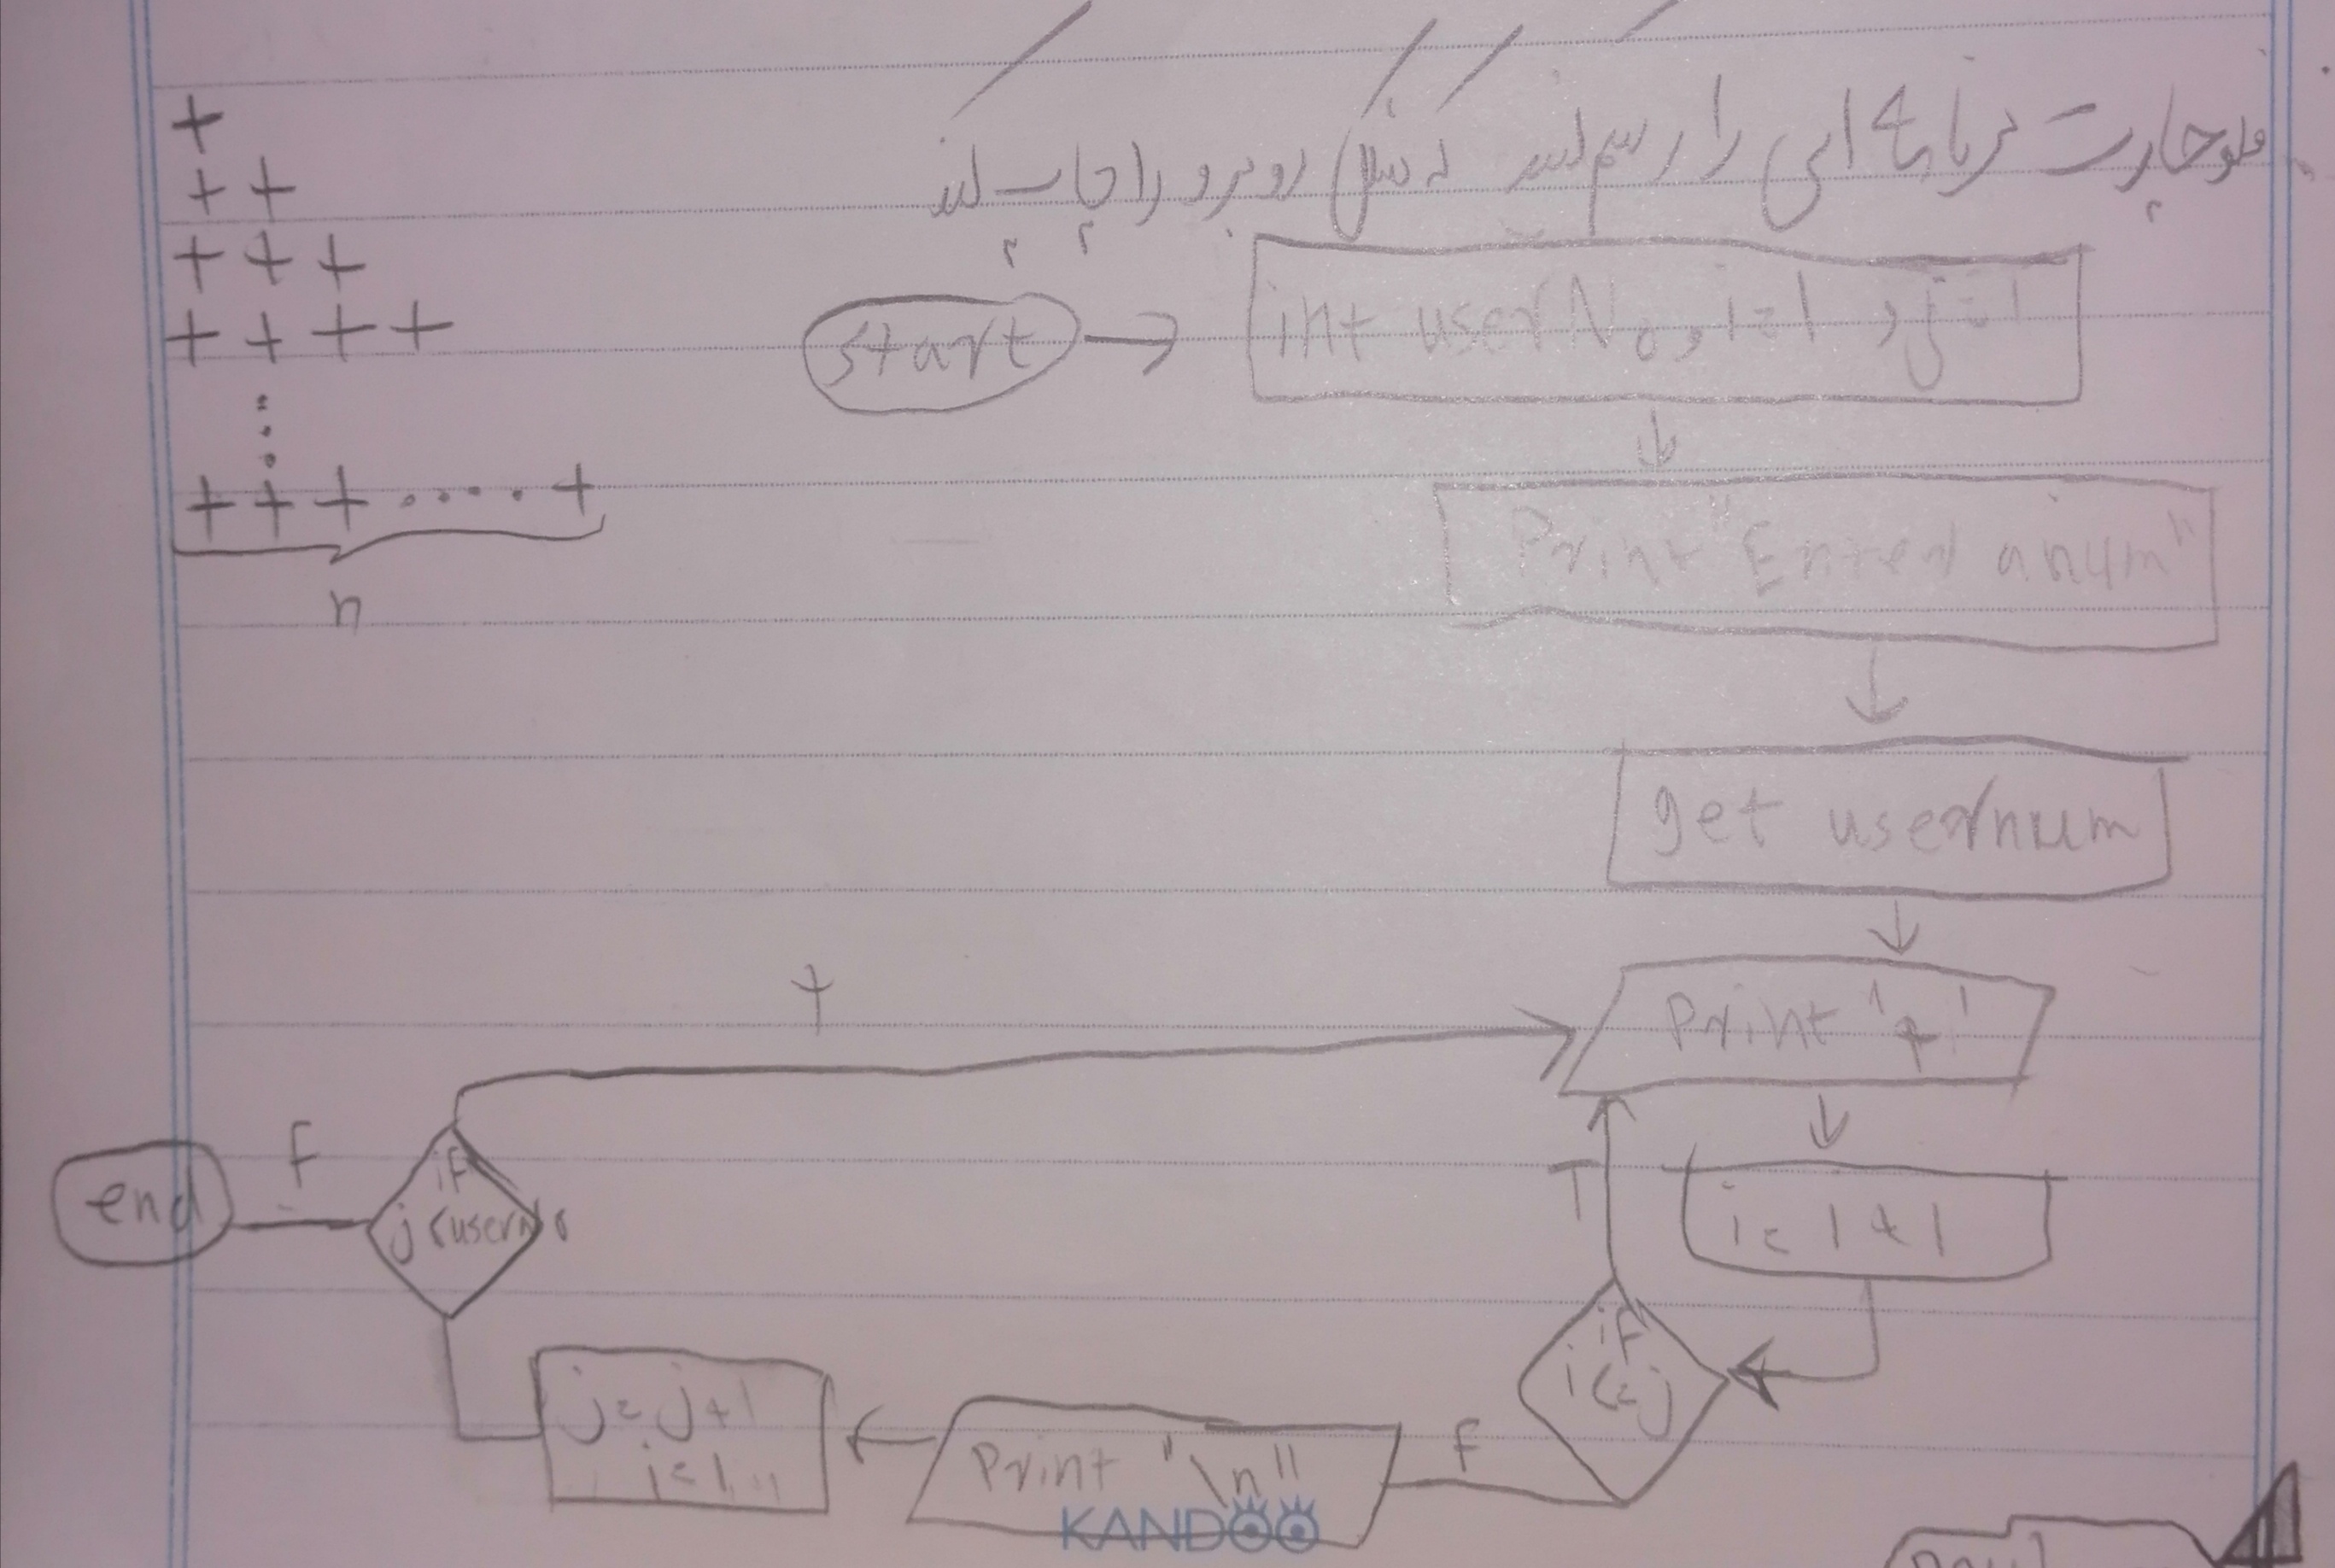 فلوچارت برنامه ای را رسم کنید که شکل روبرو را چاپ کند
+
+ +
+ + +
+ + + +
+ + + ..... +
n
start
int userNo, i=1, j=1
Print "Enter a num"
get usernum
Print '+'
i = 1 + 1
if
i<=j
T
F
Print "\n"
j = j+1
i=1
if
j<userNo
T
F
end
KANDOO